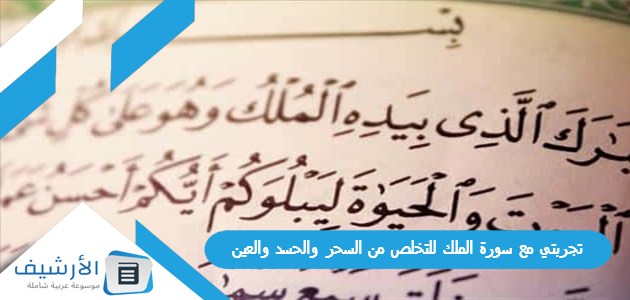 بِسْـ
بَٰرَكَ ٱلَّذِى بِيَدِهِ ٱلْمُلْكُ وَهُوَ عَلَىٰ كُلِّ
وَٱلْحَيَوٰةَ لِيَبْلُوَكُمْ أَيُّكُمْ أَحْسَنُ
تجربتي مع سورة الملك للتخلص من السحر والحسد والعين
الأرشيف
موسوعة عربية شاملة